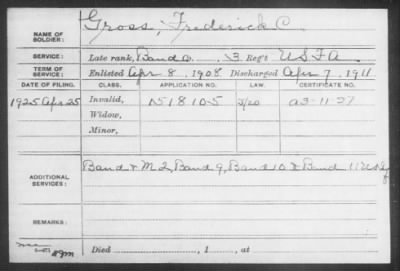 NAME OF SOLDIER: Gross, Frederick C.
SERVICE: Late rank, Band 3 Reg't U.S.F.A.
TERM OF SERVICE: Enlisted Apr 8, 1908, Discharged Apr 7, 1911
DATE OF FILING. CLASS. APPLICATION NO. LAW. CERTIFICATE NO.
1925 Apr 25 Invalid, A-3-11-27
Widow,
Minor,
ADDITIONAL SERVICES: Band & M 2, Band 9, Band 10 & Band 11 U.S.
REMARKS:
Died , 1 , at